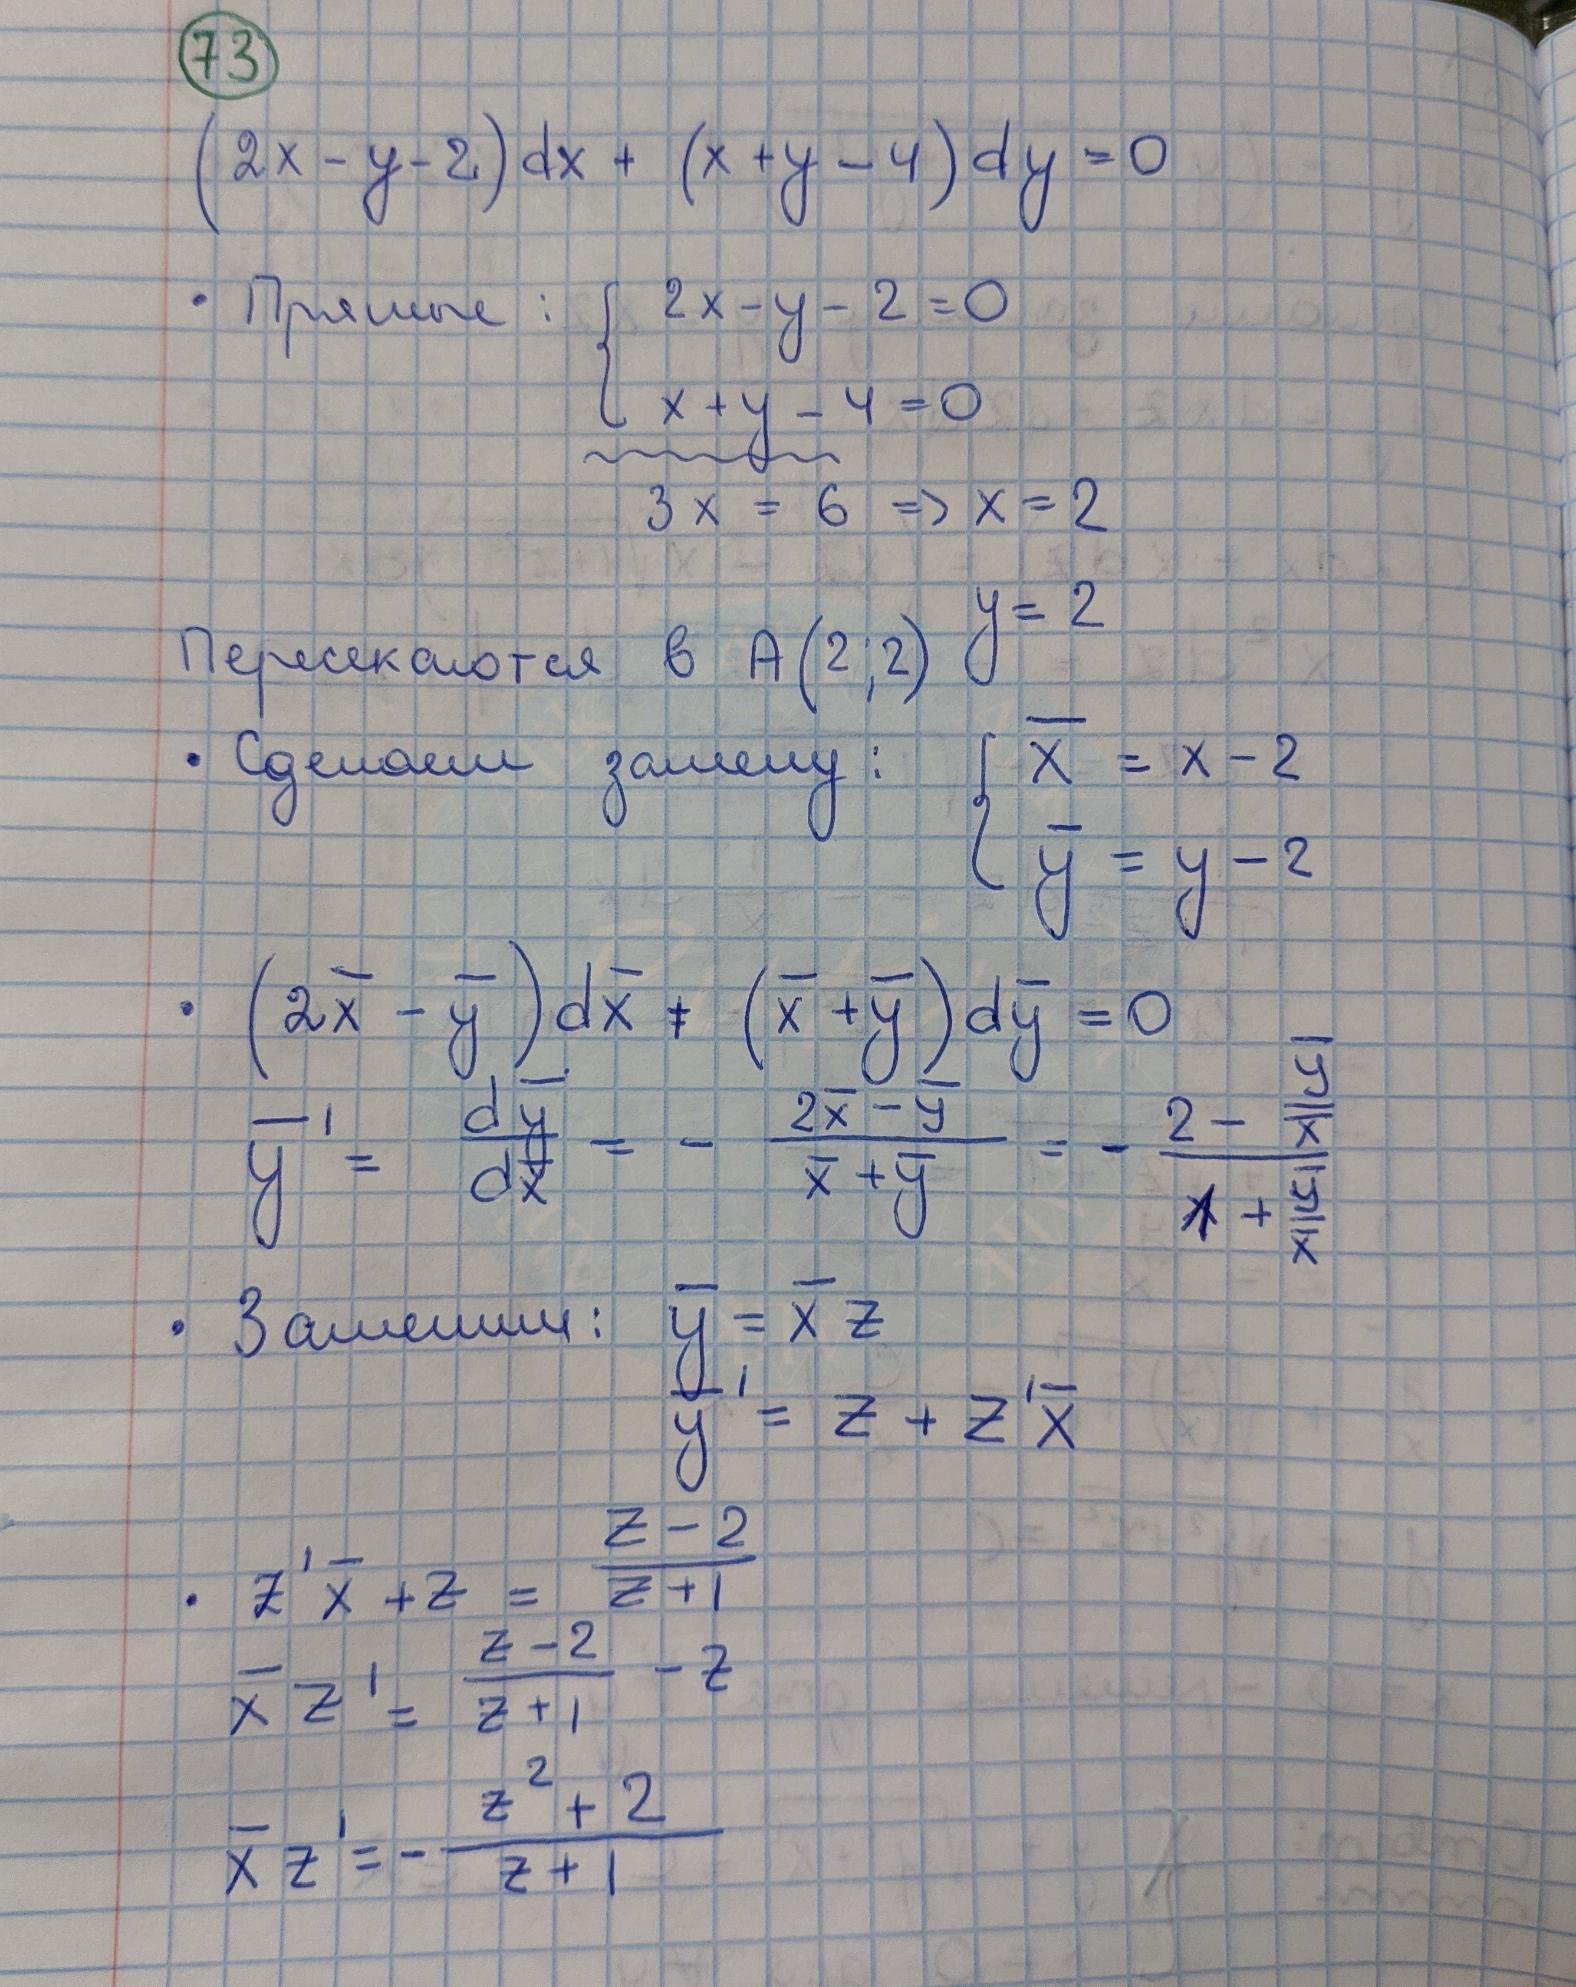 73
(2x - y - 2) dx + (x + y - 4) dy = 0
• Прямые: { 2x - y - 2 = 0
x + y - 4 = 0
3x = 6 => x = 2
y = 2
Пересекаются в A(2;2)
• Сделаем замену: { x̅ = x - 2
y̅ = y - 2
• (2x̅ - y̅) dx̅ + (x̅ + y̅) dy̅ = 0
y̅' = dy̅/dx̅ = - (2x̅ - y̅)/(x̅ + y̅) = - (2 - y̅/x̅)/(1 + y̅/x̅)
• Заменим: y̅ = x̅ z
y̅' = z + z'x̅
• z'x̅ + z = (z - 2)/(z + 1)
x̅ z' = (z - 2)/(z + 1) - z
x̅ z' = - (z² + 2)/(z + 1)